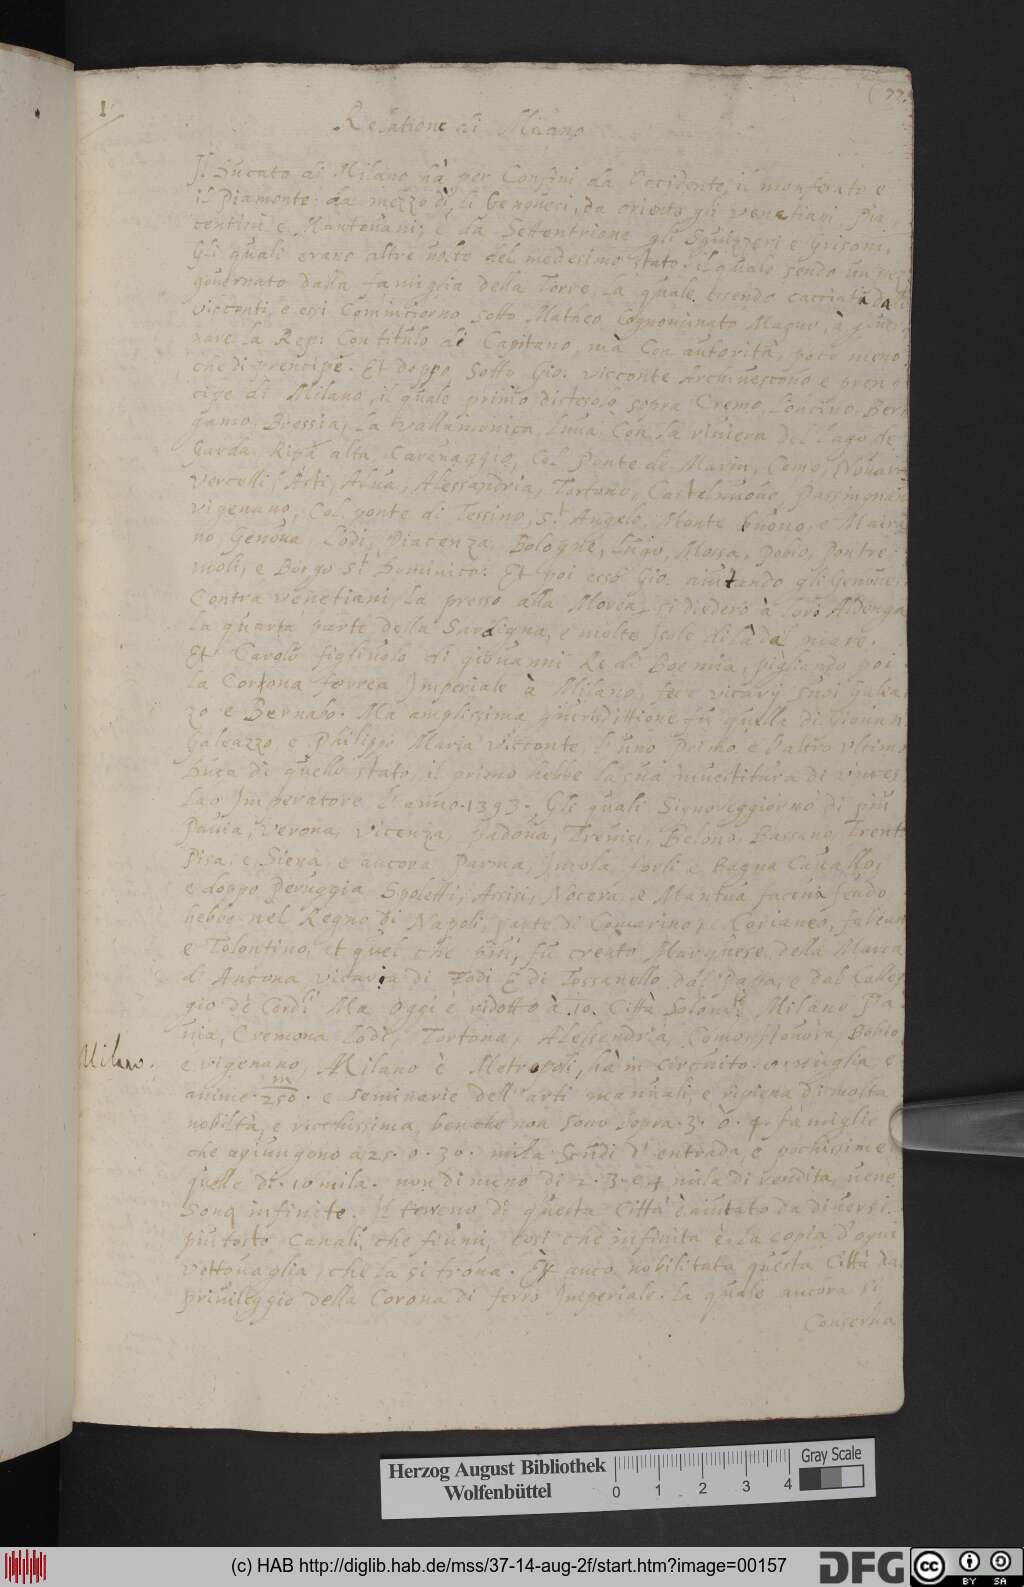 1
77
Relatione di Milano
Il Ducato di Milano hà per Confini da Occidente, il monferato e
il Piamonte: da mezzo dì, li Genovesi, da oriente gli Venetiani Pia
centini e Mantovani; e da Settentrione gli Squizzeri e Grisoni.
Gli quali erano altre volte del medesimo stato. il quale sendo un
governato dalla famiglia della Torre, la quale essendo cacciata da
Visconti, e essi Comminciorno sotto Matheo Cognominato Magno, à gover
nare la Rep: Con titulo di Capitano, mà Con autorità, poco meno
che di prencipe. Et doppo sotto Gio: Visconte Archivescovo e pren
cipe di Milano, il quale primo distese sopra Cremo, Ber
gamo, Bressia, la Vallamonica, Con la riviera del lago de
Garda Ripa alta Caravaggio, Col Ponte de Como, Novar
Vercelli, Asti, Alessandria, Tortona, Castelnuovo, Bassignan
Vigevano, Col ponte di Tessino, St Angelo, Monte buono, e
no, Genova Lodi, Piacenza, Bologne, Massa, Bobio, Pontre
moli, e Borgo St Dominico: Et poi esso Gio. aiutando gli Genoves
Contra Venetiani la presso alla Morea, si diedero à loro Albenga
la quarta parte della Sardigna, e molte Isole di là dal mare.
Et Carolo figlivolo di giovanni Re di Boemia, pigliando poi
la Corona ferrea Imperiale à Milano, fece vicarij suoi Galea
zo e Bernabo. Ma amplissima giurisdittione fù quella di Giovan
Galeazzo, e Philippo Maria Visconte, l'uno Primo, e l'altro ultimo
Duca di quello stato, il primo hebbe la sua investitura di Vinces
lao Imperatore l'anno. 1393. Gli quali Signoreggiorno di più
Pavia, Verona, Vicenza, Padova, Trevisi, Belono, Bassano, Trent
Pisa, e Siena, e ancora Parma, Imola forli e Bagna Cavallo,
e doppo Peruggia Spoletti, Assisi, Nocera, e Mantua
hebbe nel Regno di Napoli, parte di
e Tolontino, et quel che più, fu creato Marchese della Marca
d'Ancona vicaria di Todi E di dal Papa, e dal Colle
gio dè Cardli Ma oggi è ridotto à .10. Città Milano Pa
via, Cremona Lodi, Tortona, Alessandria, Como, Novara Bobio
Milano.
e vigevano, Milano è Metropoli, hà in Circuito. miglia e
anime. 250 m. e seminario dell'arti manuali, e ripiena di molta
nobiltà, e ricchissima, benche non sono sopra. 3. ò. 4. famiglie
che agiungono à 25. o. 30. mila scudi d'entrada, e pochissime
quelle di. 10 mila. di 2. 3. e 4 mila di rendita, vene
sono infinite. Il terreno di questa Città è aiutato da diversi
piutosto Canali, che fiumi, così che infinita è la copia d'ogni
vettovaglia, che la si trova. Et anco nobilitata questa Città da
privileggio della Corona di ferro Imperiale. la quale ancora si
Conserva
Herzog August Bibliothek
Wolfenbüttel
0 1 2 3 4
Gray Scale
(c) HAB http://diglib.hab.de/mss/37-14-aug-2f/start.htm?image=00157
DFG
cc BY SA